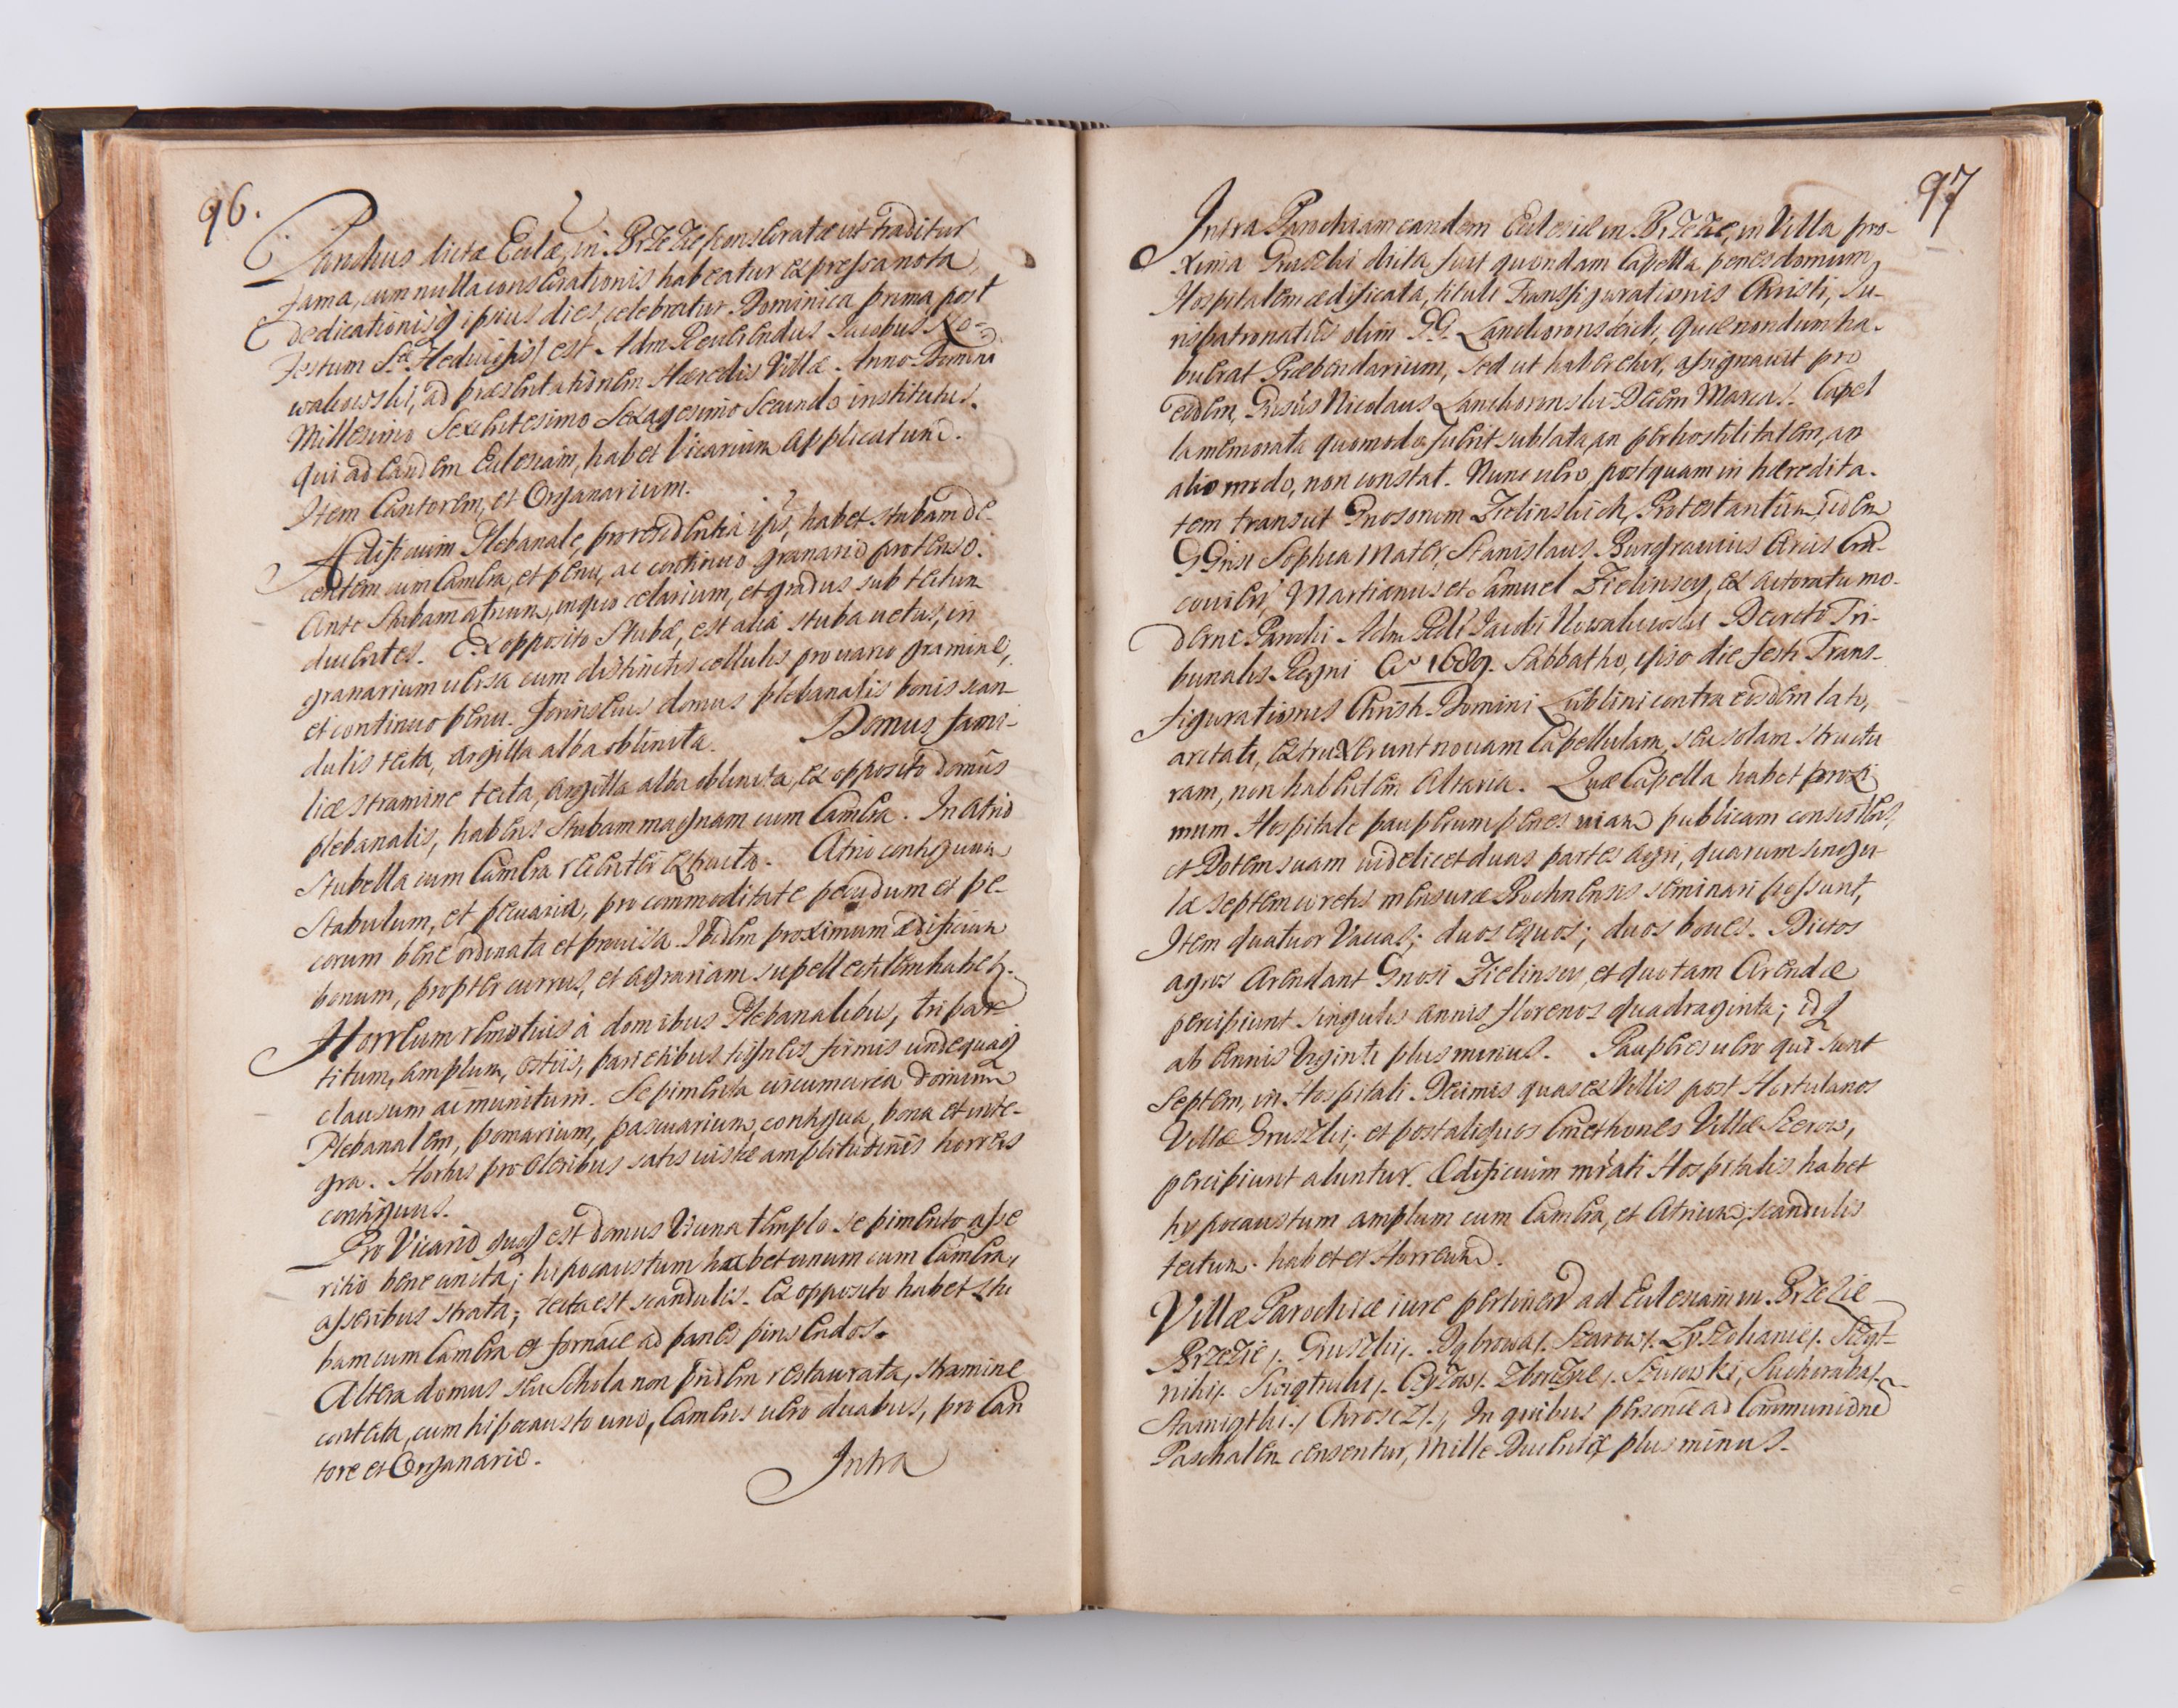 96.
Parochus dictæ Ecclæ, in Brzezie, (consecratæ ut traditur
fama, cum nulla consecrationis habeatur expressa nota,
dedicationisq ipsius dies, celebratur Dominica prima post
Festum Stæ Heduigis) est Adm Reuerendus Jacobus No-
wakowski, ad præsentationem Hæredis Villæ. Anno Domini
Millesimo Sexcentesimo Sexagesimo Secundo institutus.
Qui ad eandem Eclesiam, habet Vicarium applicatum.
Item Cantorem, et Organarium.
Ædificium Plebanale, pro residentia ipsi, habet stubam de-
centem cum Camera, et penu, ac continuo granario protenso.
Ante Stubam atrium, in quo celarium, et gradus sub tectum
ducentes. Ex opposito Stubæ, est alia stuba uetus, in
granarium uersa cum distinctis cellulis, pro uario gramine,
et continuo penu. Forinsecus domus plebanalis bonis scan-
dulis tecta, argilla alba oblinita. Domus fami-
liæ stramine tecta, argilla alba oblinita, ex opposito domûs
plebanalis, habens Stubam magnam cum Camera. In atrio
Stubella cum Camera recenter extructa. Atrio contiguum
Stabulum, et pecuaria, pro commoditate pecudum et pe-
corum bene ordinata et prouisa. Ibidem proximum ædificium
bonum, propter currus, et agrariam supellectilem habetq.
Horreum remotius à domibus Plebanalibus, tripar-
titum, amplum, ostiis, parietibus tigneis firmis undequaq
clausum ac munitum. Sepimenta circum circa domum
Plebanalem, pomarium, pascuarium, contigua, bona et inte-
gra. Hortus pro oleribus satis iustæ amplitudinis horreis
contiguus.
Pro Vicario quoq est domus Vicina templo sepimento asse
ritio bene cincta; hypocaustum habet unum cum Camera,
asseribus strata; tecta est scandulis. Ex opposito habet stu
bam cum Camera et fornace ad panes pinsendos.
Altera domus seu Schola non pridem restaurata, stramine
contecta, cum hipocausto uno, Cameris uero duabus, pro Can
tore et Organario.
Intra
97
Intra Parochiam eandem Eclesiæ in Brzezie, in Villa pro-
xima Gruszki dicta, fuit quondam Capella, penes domum
Hospitalem ædificata, tituli Transfigurationis Christi, Ju-
rispatronatûs olim GG. Lanckoronsciech, quæ nondum ha-
buerat Præbendarium, sed ut haberetur, assignauit pro
eodem, Gnsûs Nicolaus Lanckoronski Decem Marcas. Capel
la memorata quomodo fuerit sublata, an per hostilitatem, an
alio modo, non constat. Nunc uero, postquam in hæredita-
tem transiit Gnosorum Zielinskich, Protestantium, idem
GGnsi Sophia Mater, Stanislaus Burgrauius Arcis Cra-
couien, Martianus et Samuel Zielinscy, ex actoratu mo-
derni Parochi Adm Rdi Jacobi Nowakowski Decreto Tri-
bunalis Regni Ao 1689. Sabbatho, ipso die festi Trans-
figurationis Christi Domini Lublini contra eosdem lato,
arctati, extruxerunt nouam Capellulam, seu solam structu
ram, non habentem Altaria. Quæ Capella habet proxi
mum Hospitale pauperum penes uiam publicam consistens,
et Dotem suam uidelicet duas partes agri, quarum singu
læ septem coretis mensuræ Bochnensis seminari possunt,
Item quatuor Vaccas; duos equos; duos boues. Dictos
agros Arendant Gnosi Zielinscy, et quotam Arendæ
percipiunt singulis annis florenos quadraginta; idq
ab Annis Viginti plus minus. Pauperes uero qui sunt
septem, in Hospitali Decimis quas ex Villis post Hortulanos
Villæ Gruszki; et post aliquos Cmethones Villæ Szarow,
percipiunt aluntur. Ædificium mrati Hospitalis habet
hypocaustum amplum cum Camera, et Atrium, scandulis
tectum. habet et Horreum.
Villæ Parochiæ iure pertinen ad Eclesiam in Brzezie
Brzezie /. Gruszki /. Dąbrowa /. Szarow /. Łyszokanie /. Stąt-
niki /. Swiątniki /. Czyżow /. Zborzye /. Szurowki, Suchoraba /.
Staniątki /. Chrosc /., In quibus personæ ad Communione
Paschalem censentur, Mille Ducentæ plus minus.